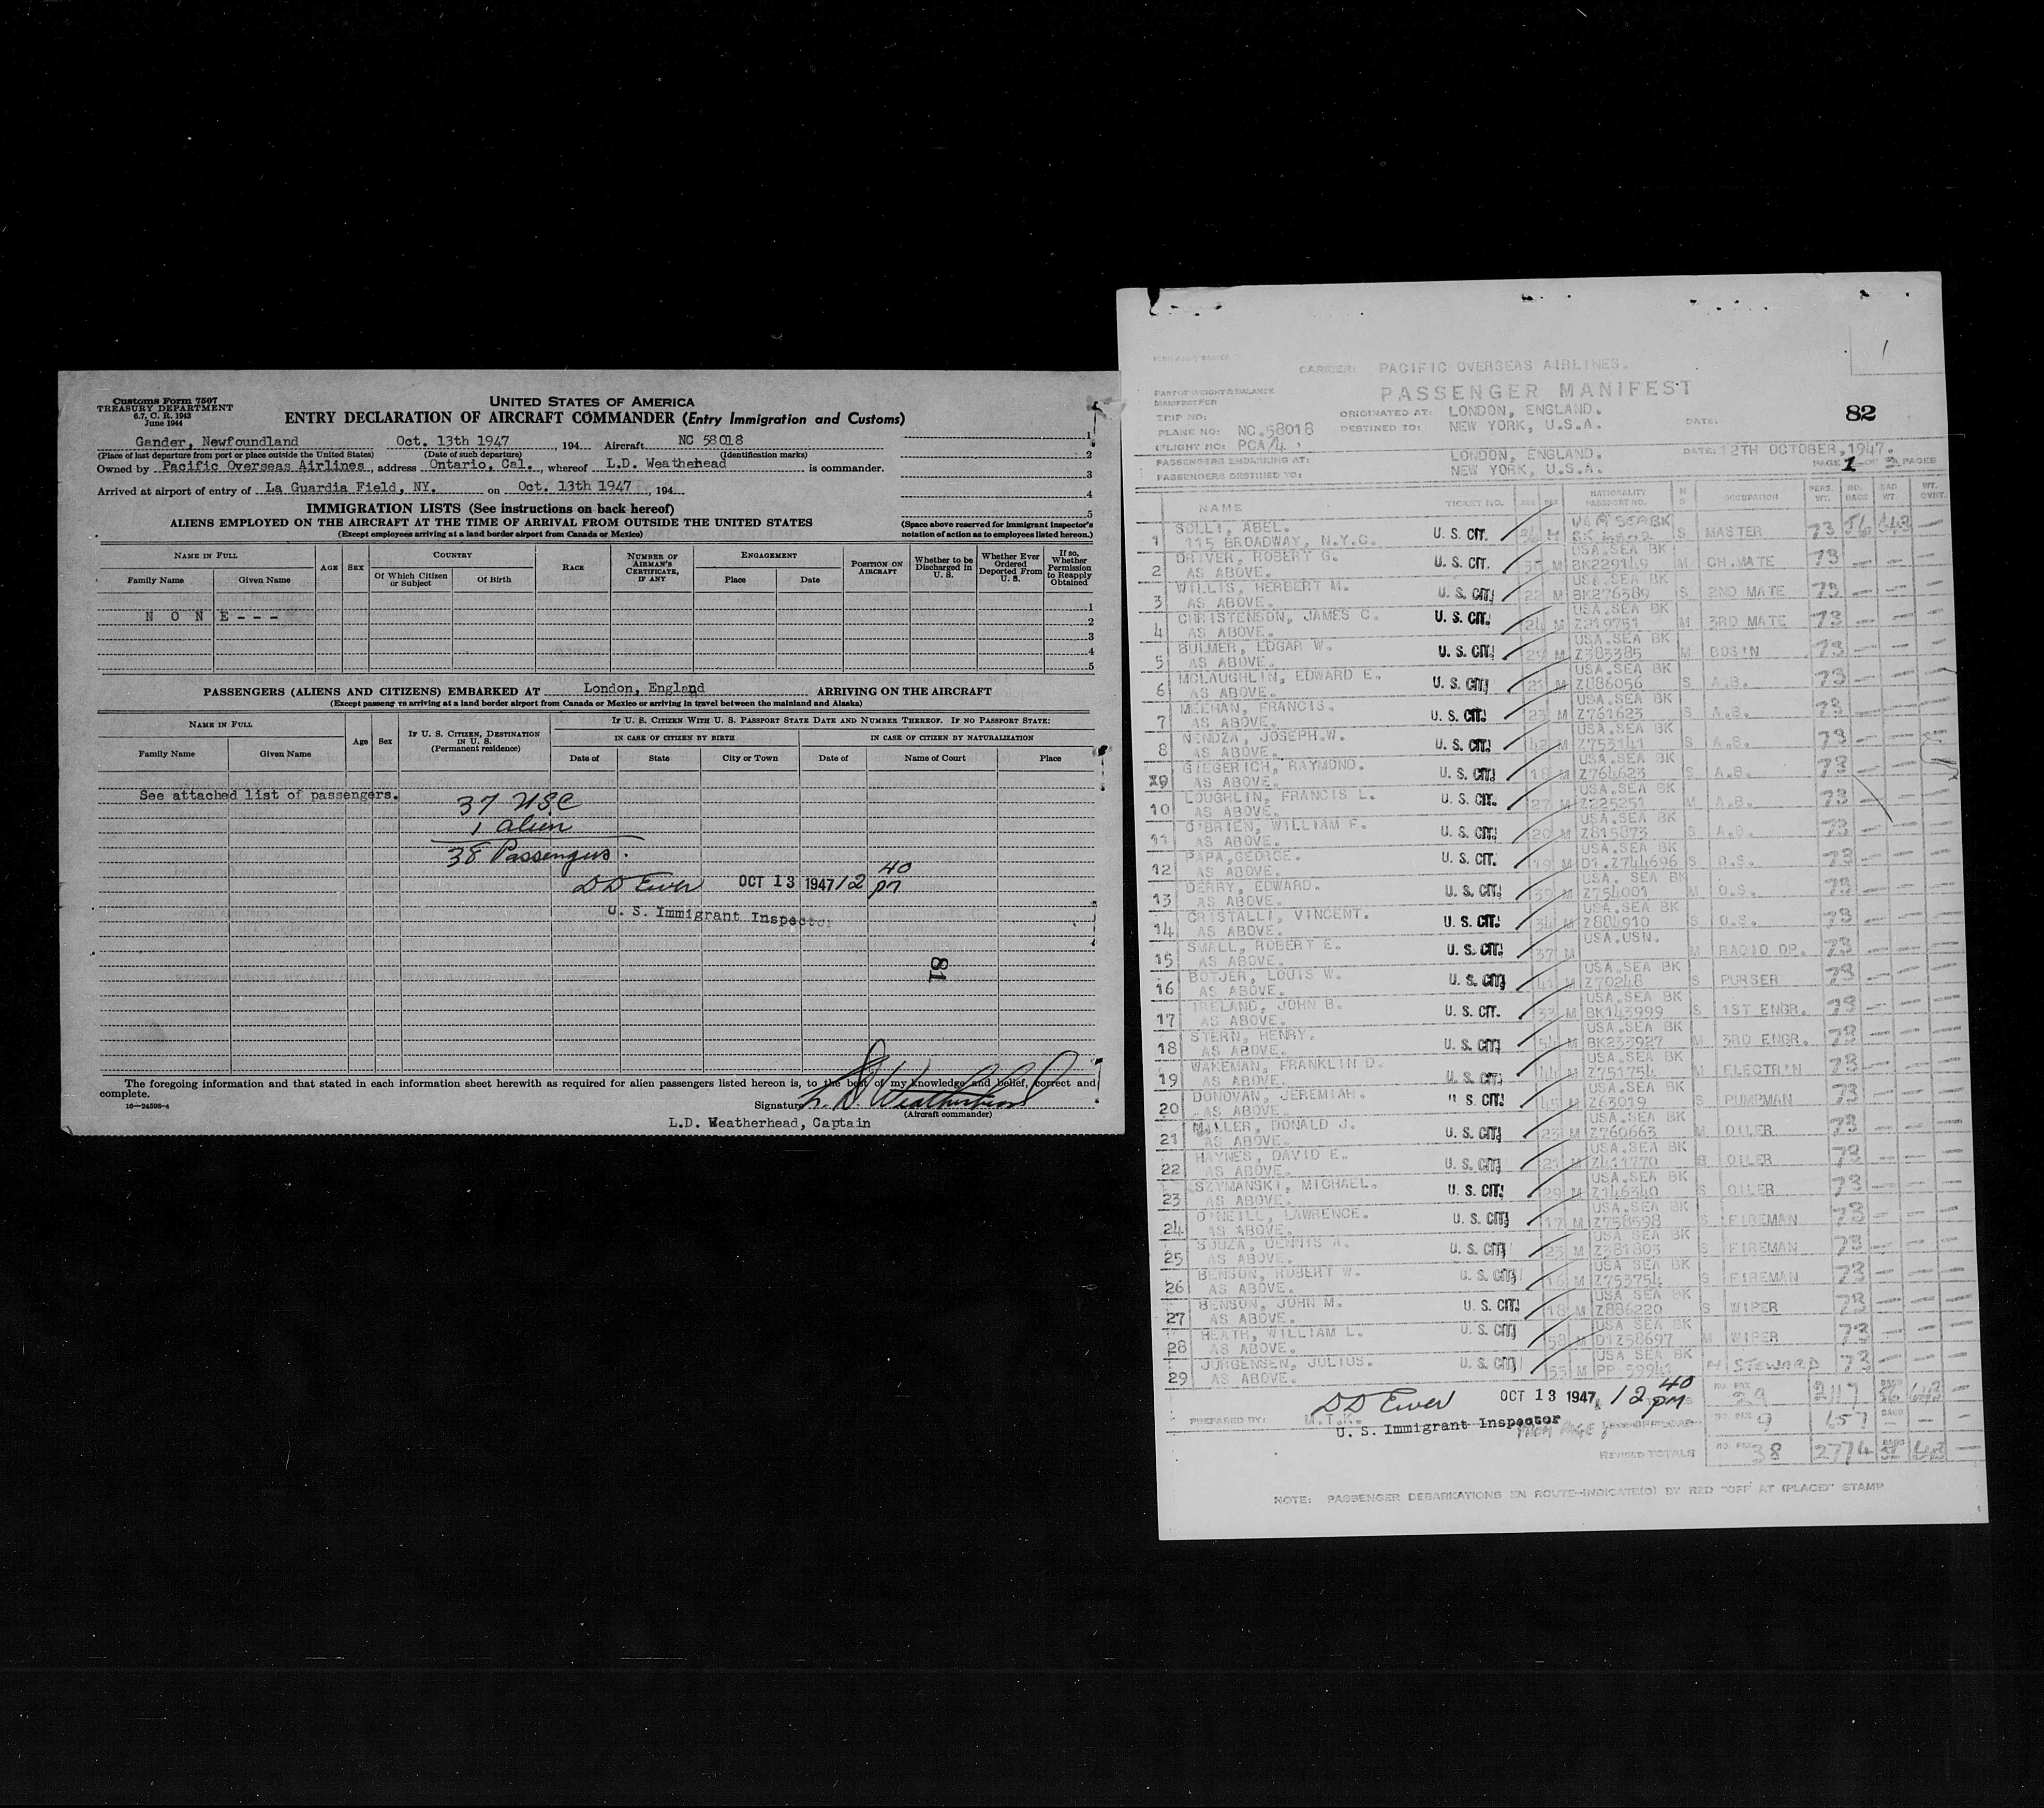 Customs Form 7507
TREASURY DEPARTMENT
6.7, C. R. 1943
June 1944
UNITED STATES OF AMERICA
ENTRY DECLARATION OF AIRCRAFT COMMANDER (Entry Immigration and Customs)
Gander, Newfoundland Oct. 13th 1947 , 194 Aircraft NC 58018
(Place of last departure from port or place outside the United States) (Date of such departure) (Identification marks)
Owned by Pacific Overseas Airlines , address Ontario, Cal. , whereof L.D. Weathehead is commander.
Arrived at airport of entry of La Guardia Field, NY. on Oct. 13th 1947 , 194
1
2
3
4
5
IMMIGRATION LISTS (See instructions on back hereof)
ALIENS EMPLOYED ON THE AIRCRAFT AT THE TIME OF ARRIVAL FROM OUTSIDE THE UNITED STATES
(Except employees arriving at a land border airport from Canada or Mexico)
(Space above reserved for immigrant inspector's notation of action as to employees listed hereon.)
NAME IN FULL AGE SEX COUNTRY RACE NUMBER OF AIRMAN'S CERTIFICATE, IF ANY ENGAGEMENT POSITION ON AIRCRAFT Whether to be Discharged in U. S. Whether Ever Ordered Deported From U. S. If so, Whether Permission to Reapply Obtained
Family Name Given Name Of Which Citizen or Subject Of Birth Place Date
1
N O N E - - - 2
3
4
5
PASSENGERS (ALIENS AND CITIZENS) EMBARKED AT London, England ARRIVING ON THE AIRCRAFT
(Except passengers arriving at a land border airport from Canada or Mexico or arriving in travel between the mainland and Alaska)
NAME IN FULL Age Sex IF U. S. CITIZEN, DESTINATION IN U. S. (Permanent residence) IF U. S. CITIZEN WITH U. S. PASSPORT STATE DATE AND NUMBER THEREOF. IF NO PASSPORT STATE:
IN CASE OF CITIZEN BY BIRTH IN CASE OF CITIZEN BY NATURALIZATION
Family Name Given Name Date of State City or Town Date of Name of Court Place
See attached list of passengers.
37 USC
1 alien
38 Passengers.
DD Ewer OCT 13 1947 12 40 pm
U. S. Immigrant Inspector
81
The foregoing information and that stated in each information sheet herewith as required for alien passengers listed hereon is, to the best of my knowledge and belief, correct and
complete.
16-24598-4
Signature L. D. Weatherhead
(Aircraft commander)
L.D. Weatherhead, Captain
1
CARRIER: PACIFIC OVERSEAS AIRLINES.
PART OF WEIGHT & BALANCE
MANIFEST FOR
PASSENGER MANIFEST
82
TRIP NO: ORIGINATED AT: LONDON, ENGLAND.
PLANE NO: NC.58018 DESTINED TO: NEW YORK, U.S.A. DATE:
FLIGHT NO: PCA/4
PASSENGERS EMBARKING AT: LONDON, ENGLAND. DATE: 12TH OCTOBER, 1947.
PASSENGERS DESTINED TO: NEW YORK, U.S.A. PAGE 1 OF PAGES
NAME TICKET NO. AGE SEX NATIONALITY PASSPORT NO. M S OCCUPATION PERS. WT. NO. BAGS BAG WT. WT. OVRT.
1 SOLLI, ABEL. 115 BROADWAY, N.Y.C. U. S. CIT. M S MASTER 73
2 DRIVER, ROBERT G. AS ABOVE. U. S. CIT. M USA.SEA BK BK229149 M CH.MATE 73
3 WILLIS, HERBERT M. AS ABOVE. U. S. CIT. 22 M USA.SEA BK BK276589 S 2ND MATE 73
4 CHRISTENSON, JAMES C. AS ABOVE. U. S. CIT. 24 M USA.SEA BK Z219751 M 3RD MATE 73
5 BULMER, EDGAR W. AS ABOVE. U. S. CIT. M USA.SEA BK Z383385 M BOSIN 73
6 MCLAUGHLIN, EDWARD E. AS ABOVE. U. S. CIT. 21 M USA.SEA BK Z886056 S A.B. 73
7 MEEHAN, FRANCIS. AS ABOVE. U. S. CIT. 23 M USA.SEA BK Z761623 S A.B. 73
8 NENDZA, JOSEPH.W. AS ABOVE. U. S. CIT. 42 M USA.SEA BK Z753141 S A.B. 73
9 GIEGERICH, RAYMOND. AS ABOVE. U. S. CIT. 18 M USA.SEA BK Z764623 S A.B. 73
10 LOUGHLIN, FRANCIS L. AS ABOVE. U. S. CIT. 27 M USA.SEA BK Z225251 M A.B. 73
11 O'BRIEN, WILLIAM F. AS ABOVE. U. S. CIT. 20 M USA.SEA BK Z815873 S A.B. 73
12 PAPA,GEORGE. AS ABOVE. U. S. CIT. 19 M USA.SEA BK D1.Z744696 S O.S. 73
13 DERRY, EDWARD. AS ABOVE. U. S. CIT. 39 M USA. SEA BK Z754001 M O.S. 73
14 CRISTALLI, VINCENT. AS ABOVE. U. S. CIT. 34 M USA.SEA BK Z884910 S O.S. 73
15 SMALL, ROBERT E. AS ABOVE. U. S. CIT. 37 M USA.USN. M RADIO OP. 73
16 BOTJER, LOUIS W. AS ABOVE. U. S. CIT. 41 M USA.SEA BK Z70248 S PURSER 73
17 IRELAND, JOHN B. AS ABOVE. U. S. CIT. 33 M USA.SEA BK BK143999 S 1ST ENGR. 73
18 STERN, HENRY. AS ABOVE. U. S. CIT. 54 M USA.SEA BK BK233927 M 3RD ENGR. 73
19 WAKEMAN, FRANKLIN D. AS ABOVE. U. S. CIT. 44 M USA.SEA BK Z751754 M ELECTR'N 73
20 DONOVAN, JEREMIAH. AS ABOVE. U. S. CIT. 45 M USA.SEA BK Z63019 S PUMPMAN 73
21 MILLER, DONALD J. AS ABOVE. U. S. CIT. 23 M USA.SEA BK Z760663 M OILER 73
22 HAYNES, DAVID E. AS ABOVE. U. S. CIT. 21 M USA.SEA BK Z411770 S OILER 73
23 SZYMANSKI, MICHAEL. AS ABOVE. U. S. CIT. 29 M USA.SEA BK Z146340 S OILER 73
24 O'NEILL, LAWRENCE. AS ABOVE. U. S. CIT. 17 M USA.SEA BK Z758598 S FIREMAN 73
25 SOUZA, DENNIS A. AS ABOVE. U. S. CIT. 23 M USA SEA BK Z381803 S FIREMAN 73
26 BENSON, ROBERT W. AS ABOVE. U. S. CIT. 16 M USA SEA BK Z753754 S FIREMAN 73
27 BENSON, JOHN M. AS ABOVE. U. S. CIT. 18 M USA SEA BK Z886220 S WIPER 73
28 HEATH, WILLIAM L. AS ABOVE. U. S. CIT. 58 M USA SEA BK D1Z58697 M WIPER 73
29 JURGENSEN, JULIUS. AS ABOVE. U. S. CIT. 55 M USA SEA BK PP 59941 M STEWARD 73
DD Ewer OCT 13 1947 12 40 pm NO. PAX 29 2117
PREPARED BY: M.T.K. FROM PAGE NO. PAX 9 657 BAGS
U. S. Immigrant Inspector
REVISED TOTALS NO. PAX 38 2774 BAGS
NOTE: PASSENGER DEBARKATIONS EN ROUTE-INDICATE(D) BY RED "OFF AT (PLACE)" STAMP